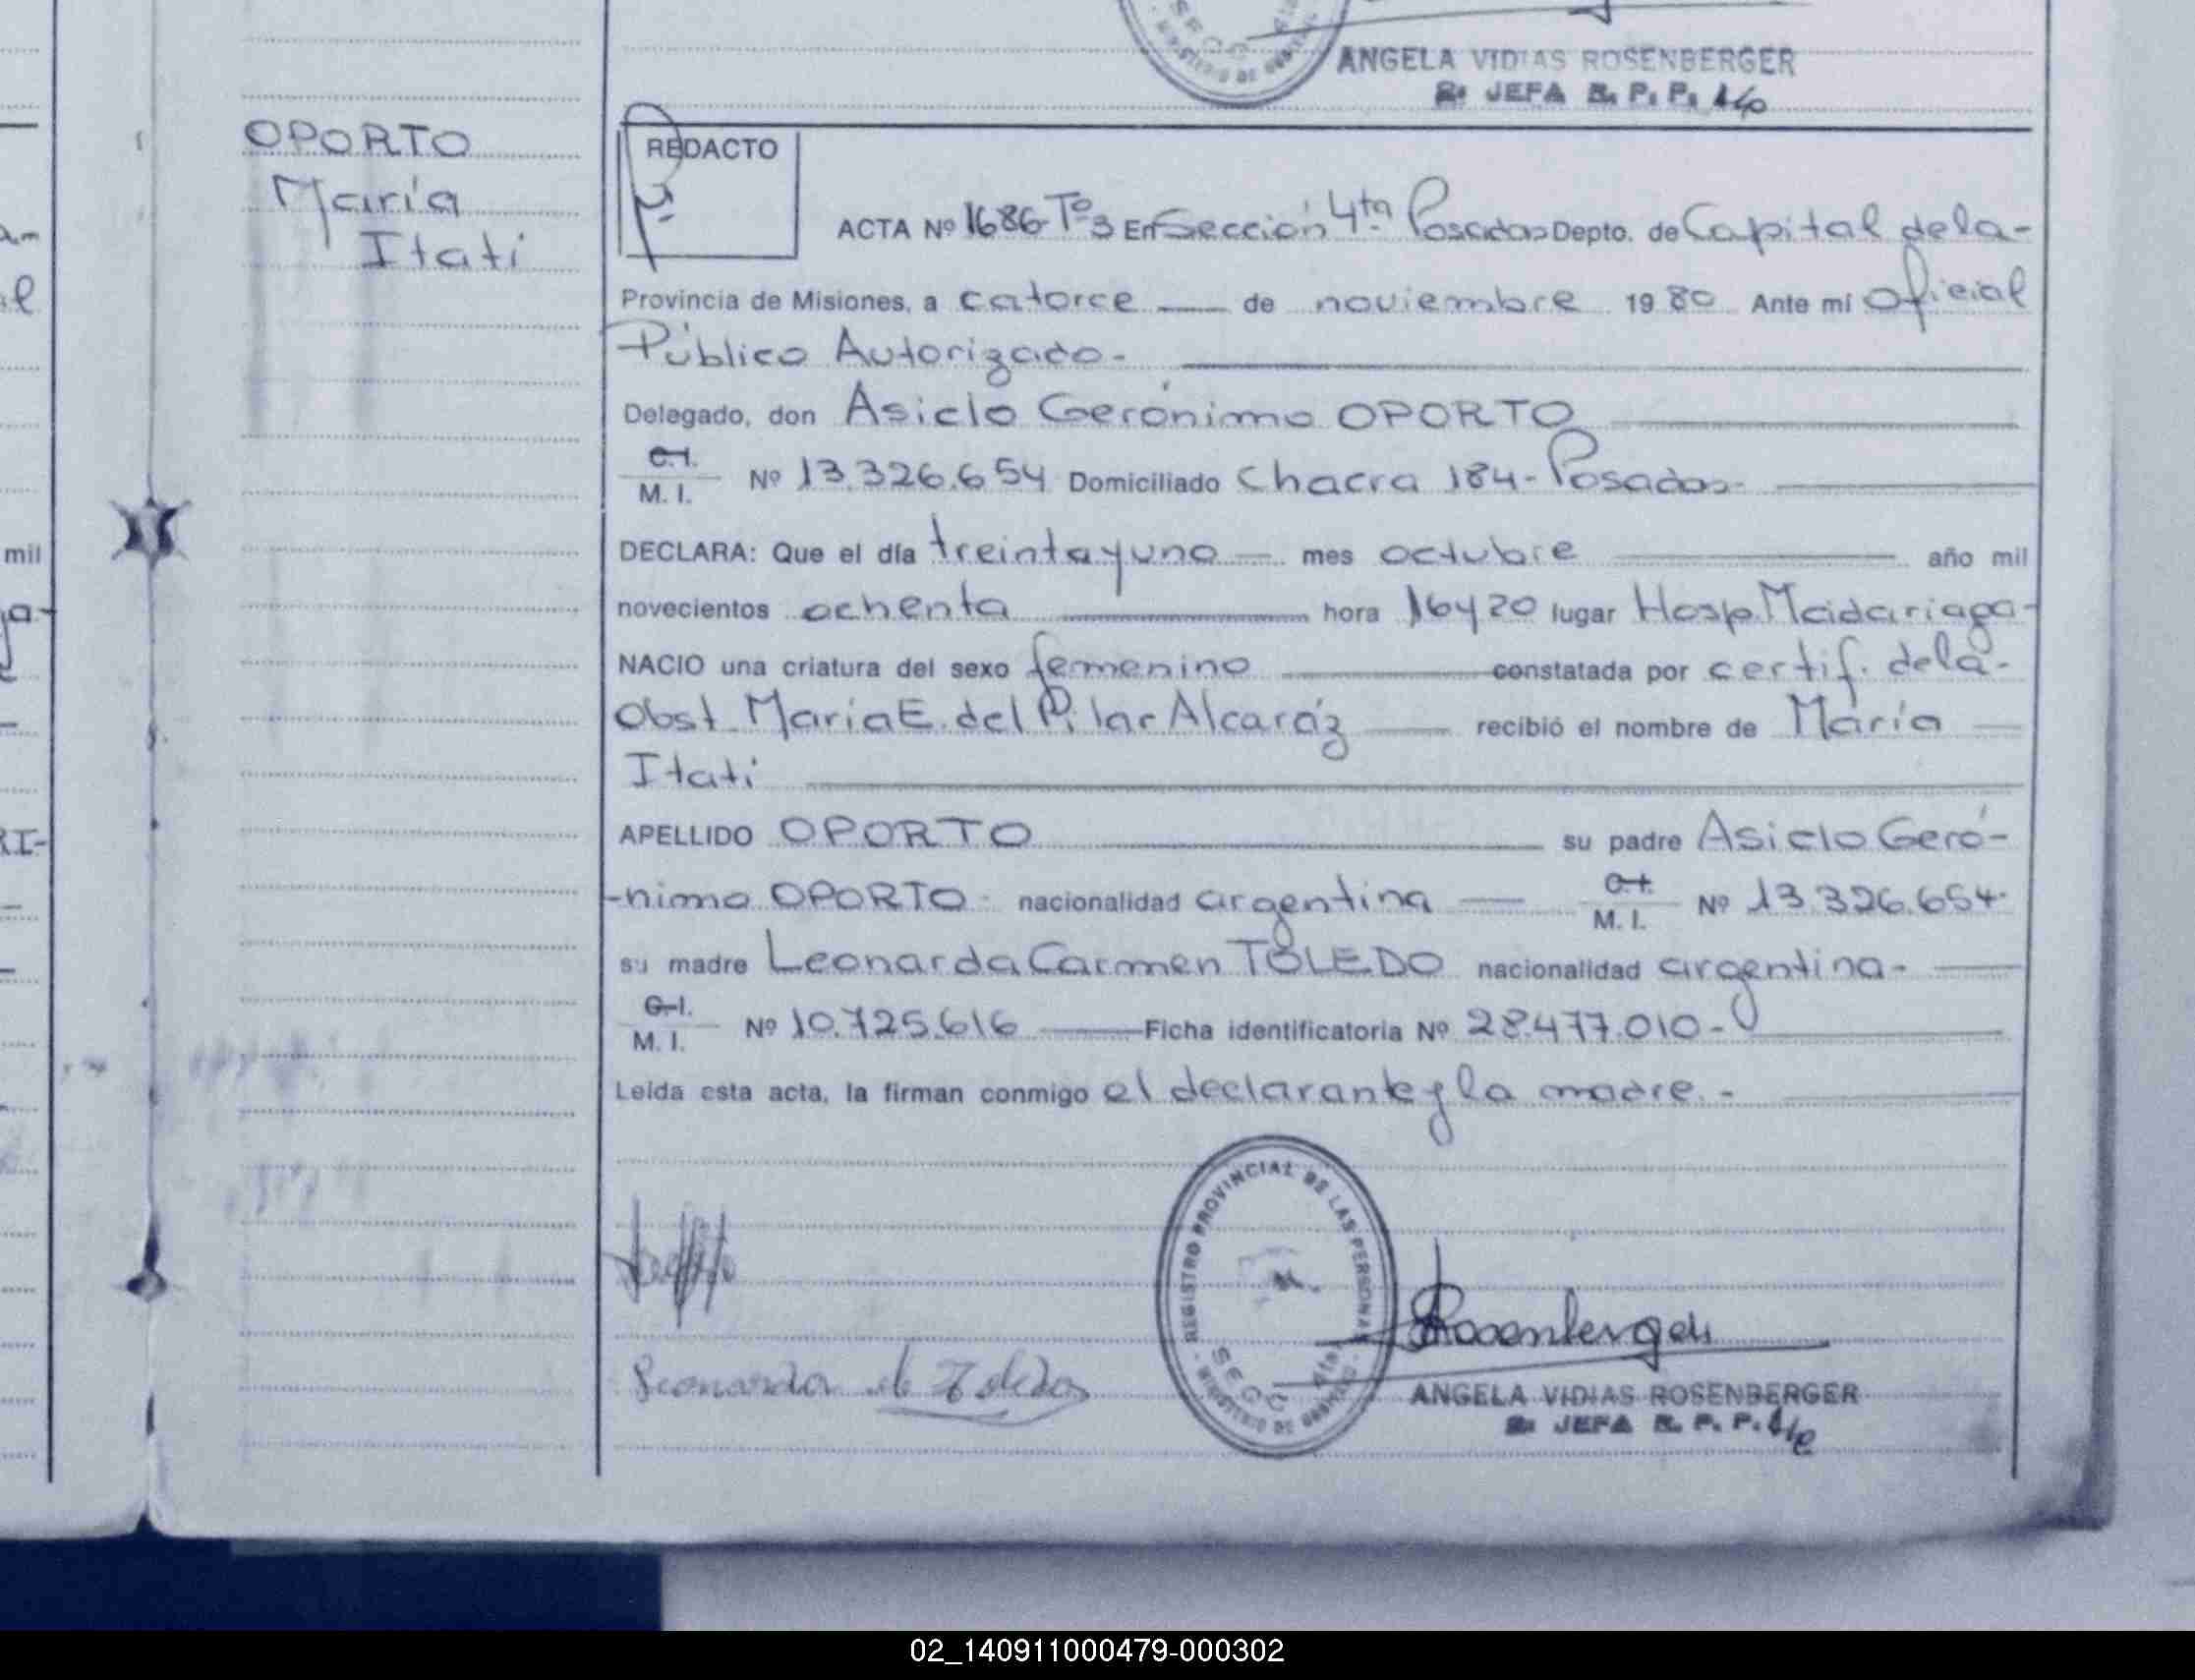 ANGELA VIDIAS ROSENBERGER
2: JEFA R. P. P.
OPORTO
María
Itatí
REDACTO
ACTA Nº 1686 Tº 3 En Sección 4ta Posadas Depto. de Capital de la-
Provincia de Misiones, a catorce — de noviembre 1980 Ante mí Oficial
Público Autorizado.-
Delegado, don Asiclo Gerónimo OPORTO
C.I.
M. I. Nº 13.326.654 Domiciliado Chacra 184- Posadas-
DECLARA: Que el día treinta y uno — mes octubre — año mil
novecientos ochenta — hora 16 y 20 lugar Hosp. Madariaga-
NACIO una criatura del sexo femenino — constatada por certif. de la-
Obst. María E. del Pilar Alcaráz — recibió el nombre de María —
Itatí
APELLIDO OPORTO — su padre Asiclo Geró-
-nimo OPORTO- nacionalidad argentina — C.I. M. I. Nº 13.326.654-
su madre Leonarda Carmen TOLEDO nacionalidad argentina-
C.I.
M. I. Nº 10.725.616 — Ficha identificatoria Nº 28.477.010-
Leída esta acta, la firman conmigo el declarante y la madre.-
REGISTRO PROVINCIAL DE LAS PERSONAS
SECC. 4ta
MINISTERIO DE GOBIERNO
Leonarda de Toledo
Rosenberger
ANGELA VIDIAS ROSENBERGER
2: JEFA R. P. P.
mil
RI-
02_140911000479-000302